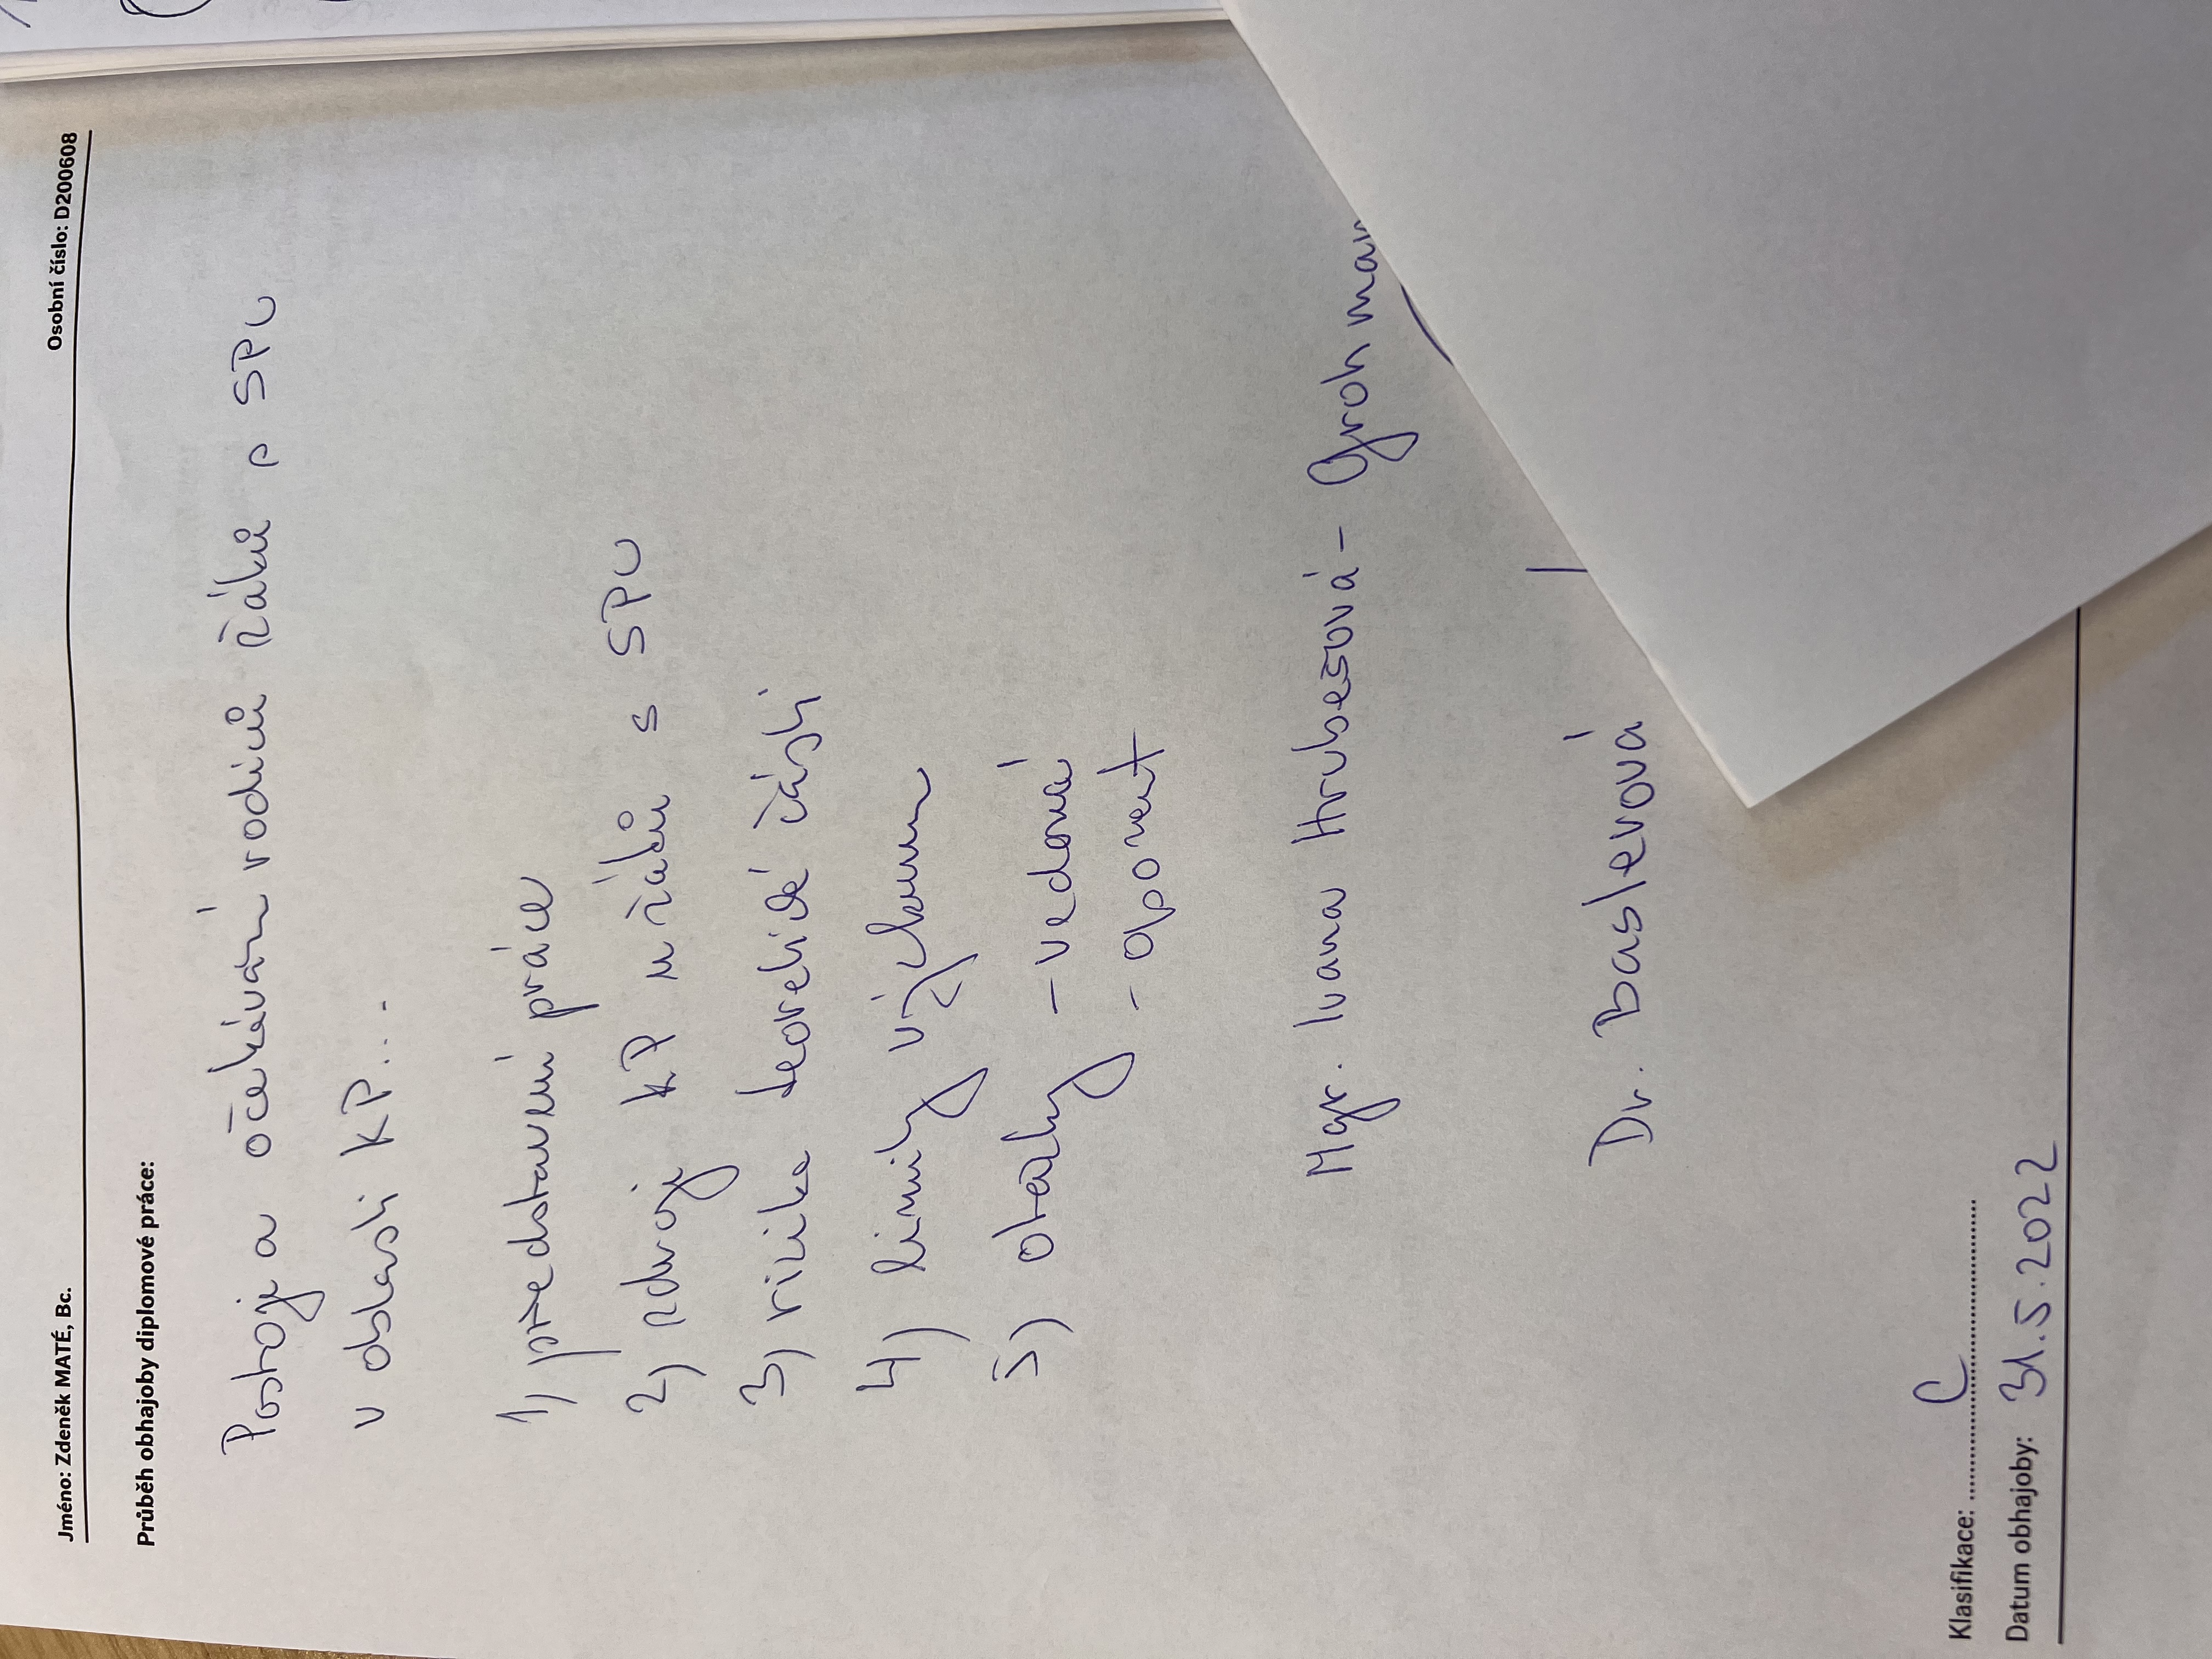 Jméno: Zdeněk MATÉ, Bc. Osobní číslo: D200608
Průběh obhajoby diplomové práce:
Postoje a očekávání rodičů žáků s SPU
v oblasti KP...
1) představení práce
2) zdroje KP u žáků s SPU
3) rizika teoretické části
4) limity výzkumu
5) otázky - vedoucí
- oponent
Mgr. Ivana Hrubešová -
Dr. Baslerová
Klasifikace: C
Datum obhajoby: 31.5.2022